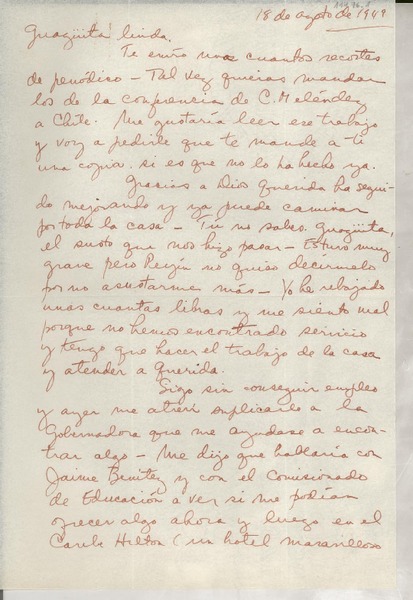 18 de agosto de 1949
Guagüita linda.
Te envío unos cuantos recortes
de periódico – Tal vez quieras mandar
los de la conferencia de C. Meléndez
a Chile. Me gustaría leer ese trabajo
y voy a pedirle que te mande a ti
una copia. si es que no lo ha hecho ya.
Gracias a Dios querida ha segui-
do mejorando y ya puede caminar
por toda la casa – Tú no sabes, guagüita,
el susto que nos hizo pasar – Estuvo muy
grave pero Pepín no quiso decírmelo
por no asustarme más – Yo he rebajado
unas cuantas libras y me siento mal
porque no hemos encontrado servicio
y tengo que hacer el trabajo de la casa
y atender a querida.
Sigo sin conseguir empleo
y ayer me atreví suplicarle a la
Gobernadora que me ayudase a encon-
trar algo – Me dijo que hablaría con
Jaime Benítez y con el Comisionado
de Educación a ver si me podían
ofrecer algo ahora y luego en el
Caribe Hilton (un hotel maravilloso